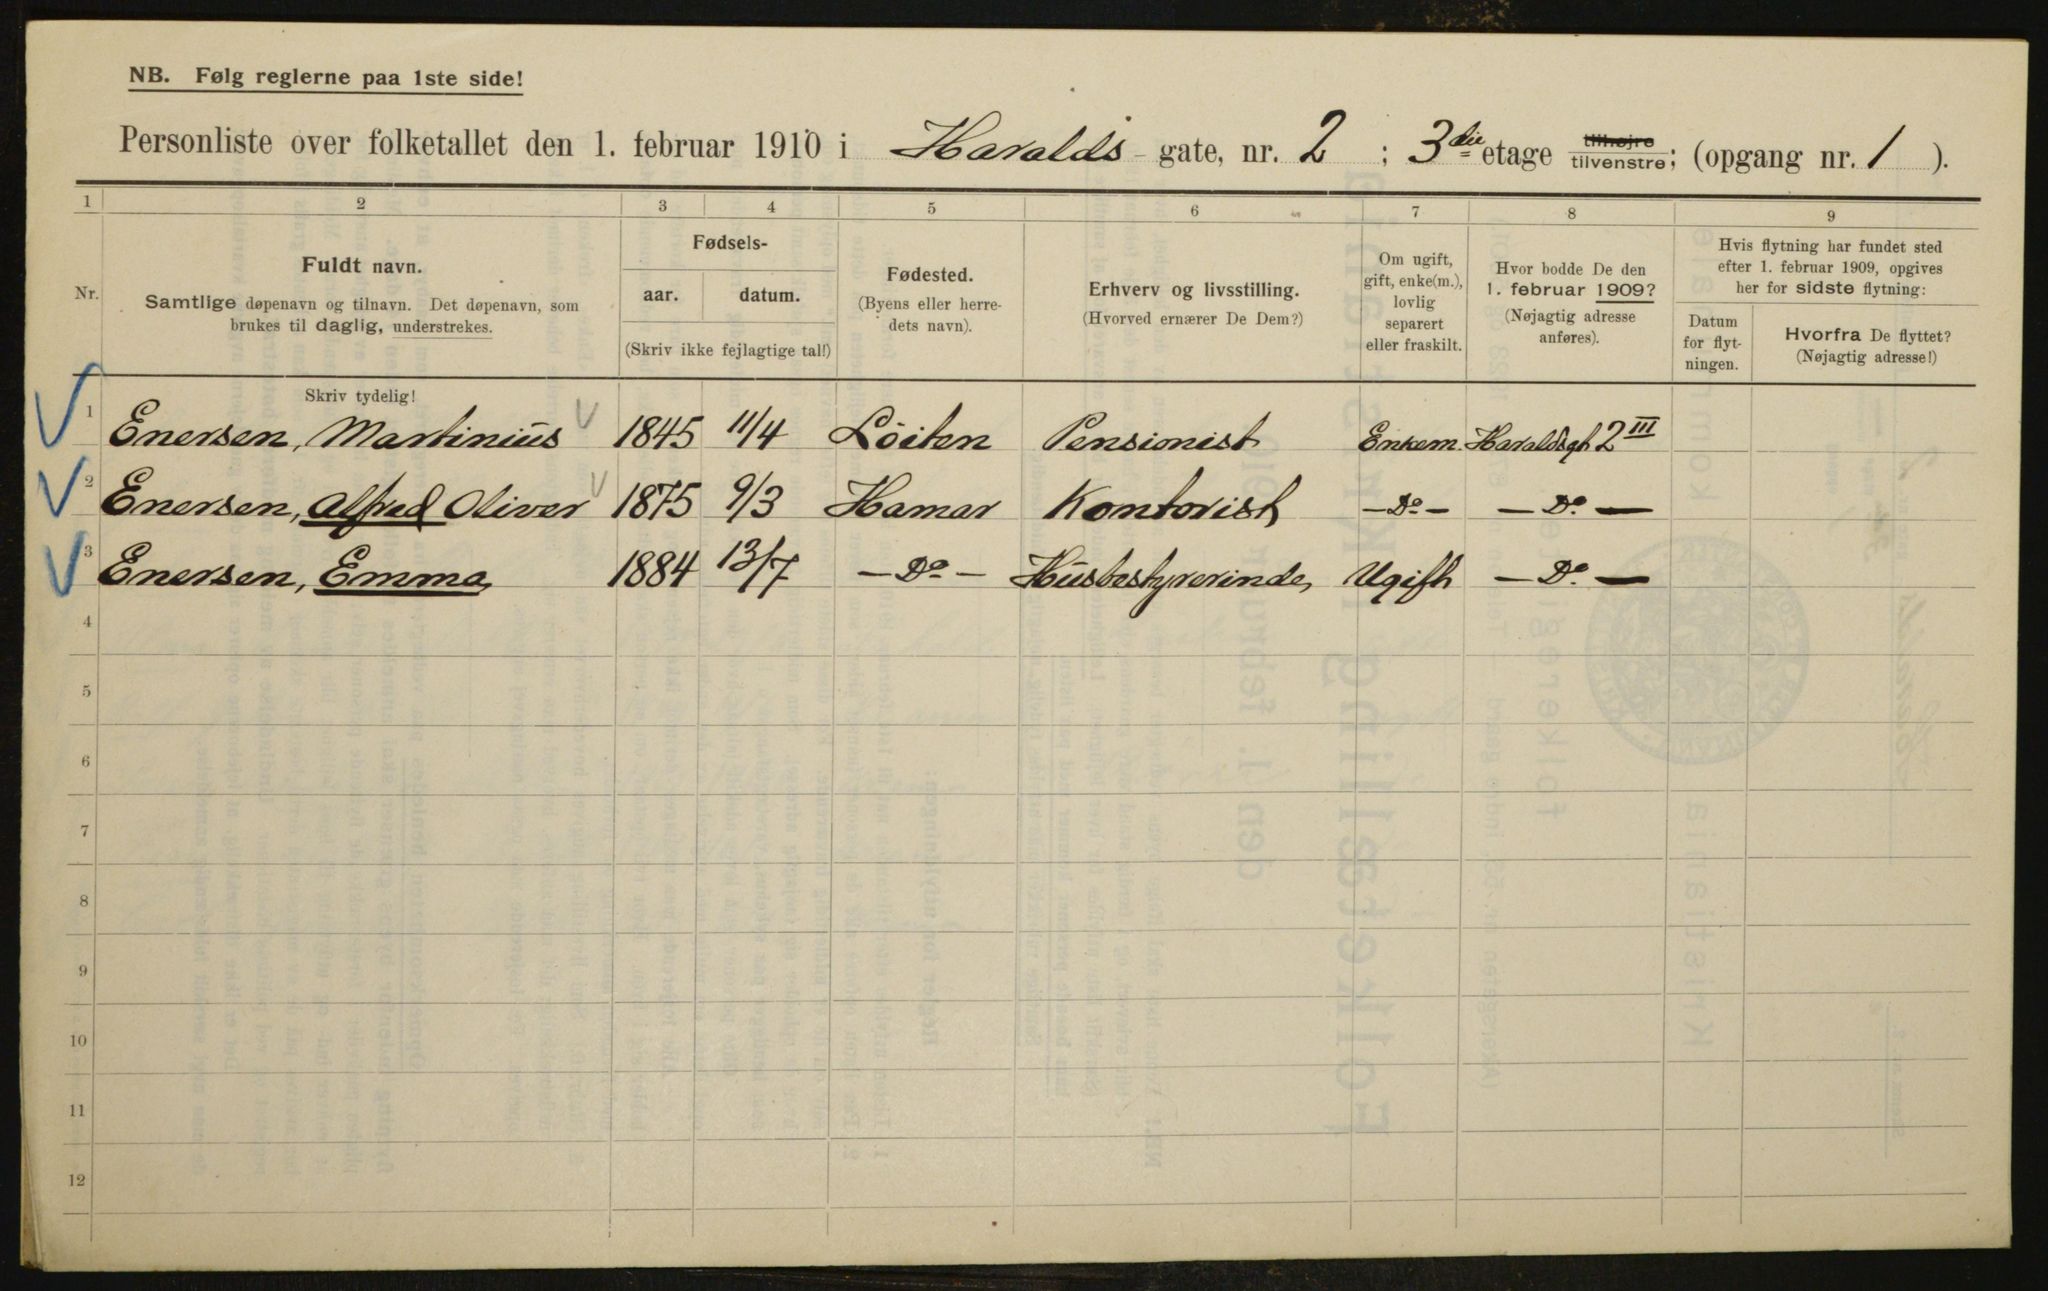 NB. Følg reglerne paa 1ste side!
Personliste over folketallet den 1. februar 1910 i Haralds gate, nr. 2 ; 3die etage tilhøjre tilvenstre; (opgang nr. 1 ).
1 2 3 4 5 6 7 8 9
Nr.
Fuldt navn.
Samtlige døpenavn og tilnavn. Det døpenavn, som
brukes til daglig, understrekes.
Fødsels-
aar. datum.
(Skriv ikke fejlagtige tal!)
Fødested.
(Byens eller herre-
dets navn).
Erhverv og livsstilling.
(Hvorved ernærer De Dem?)
Om ugift,
gift, enke(m.),
lovlig
separert
eller fraskilt.
Hvor bodde De den
1. februar 1909?
(Nøjagtig adresse
anføres).
Hvis flytning har fundet sted
efter 1. februar 1909, opgives
her for sidste flytning:
Datum
for flyt-
ningen.
Hvorfra De flyttet?
(Nøjagtig adresse!)
Skriv tydelig!
1 Enersen, Martinius 1845 11/4 Löiten Pensionist Enkem. Haraldsgt 2 III
2 Enersen, Alfred Oliver 1875 9/3 Hamar Kontorist — Do — — Do —
3 Enersen, Emma 1884 13/7 — Do — Husbestyrerinde Ugift — Do —
4
5
6
7
8
9
10
11
12